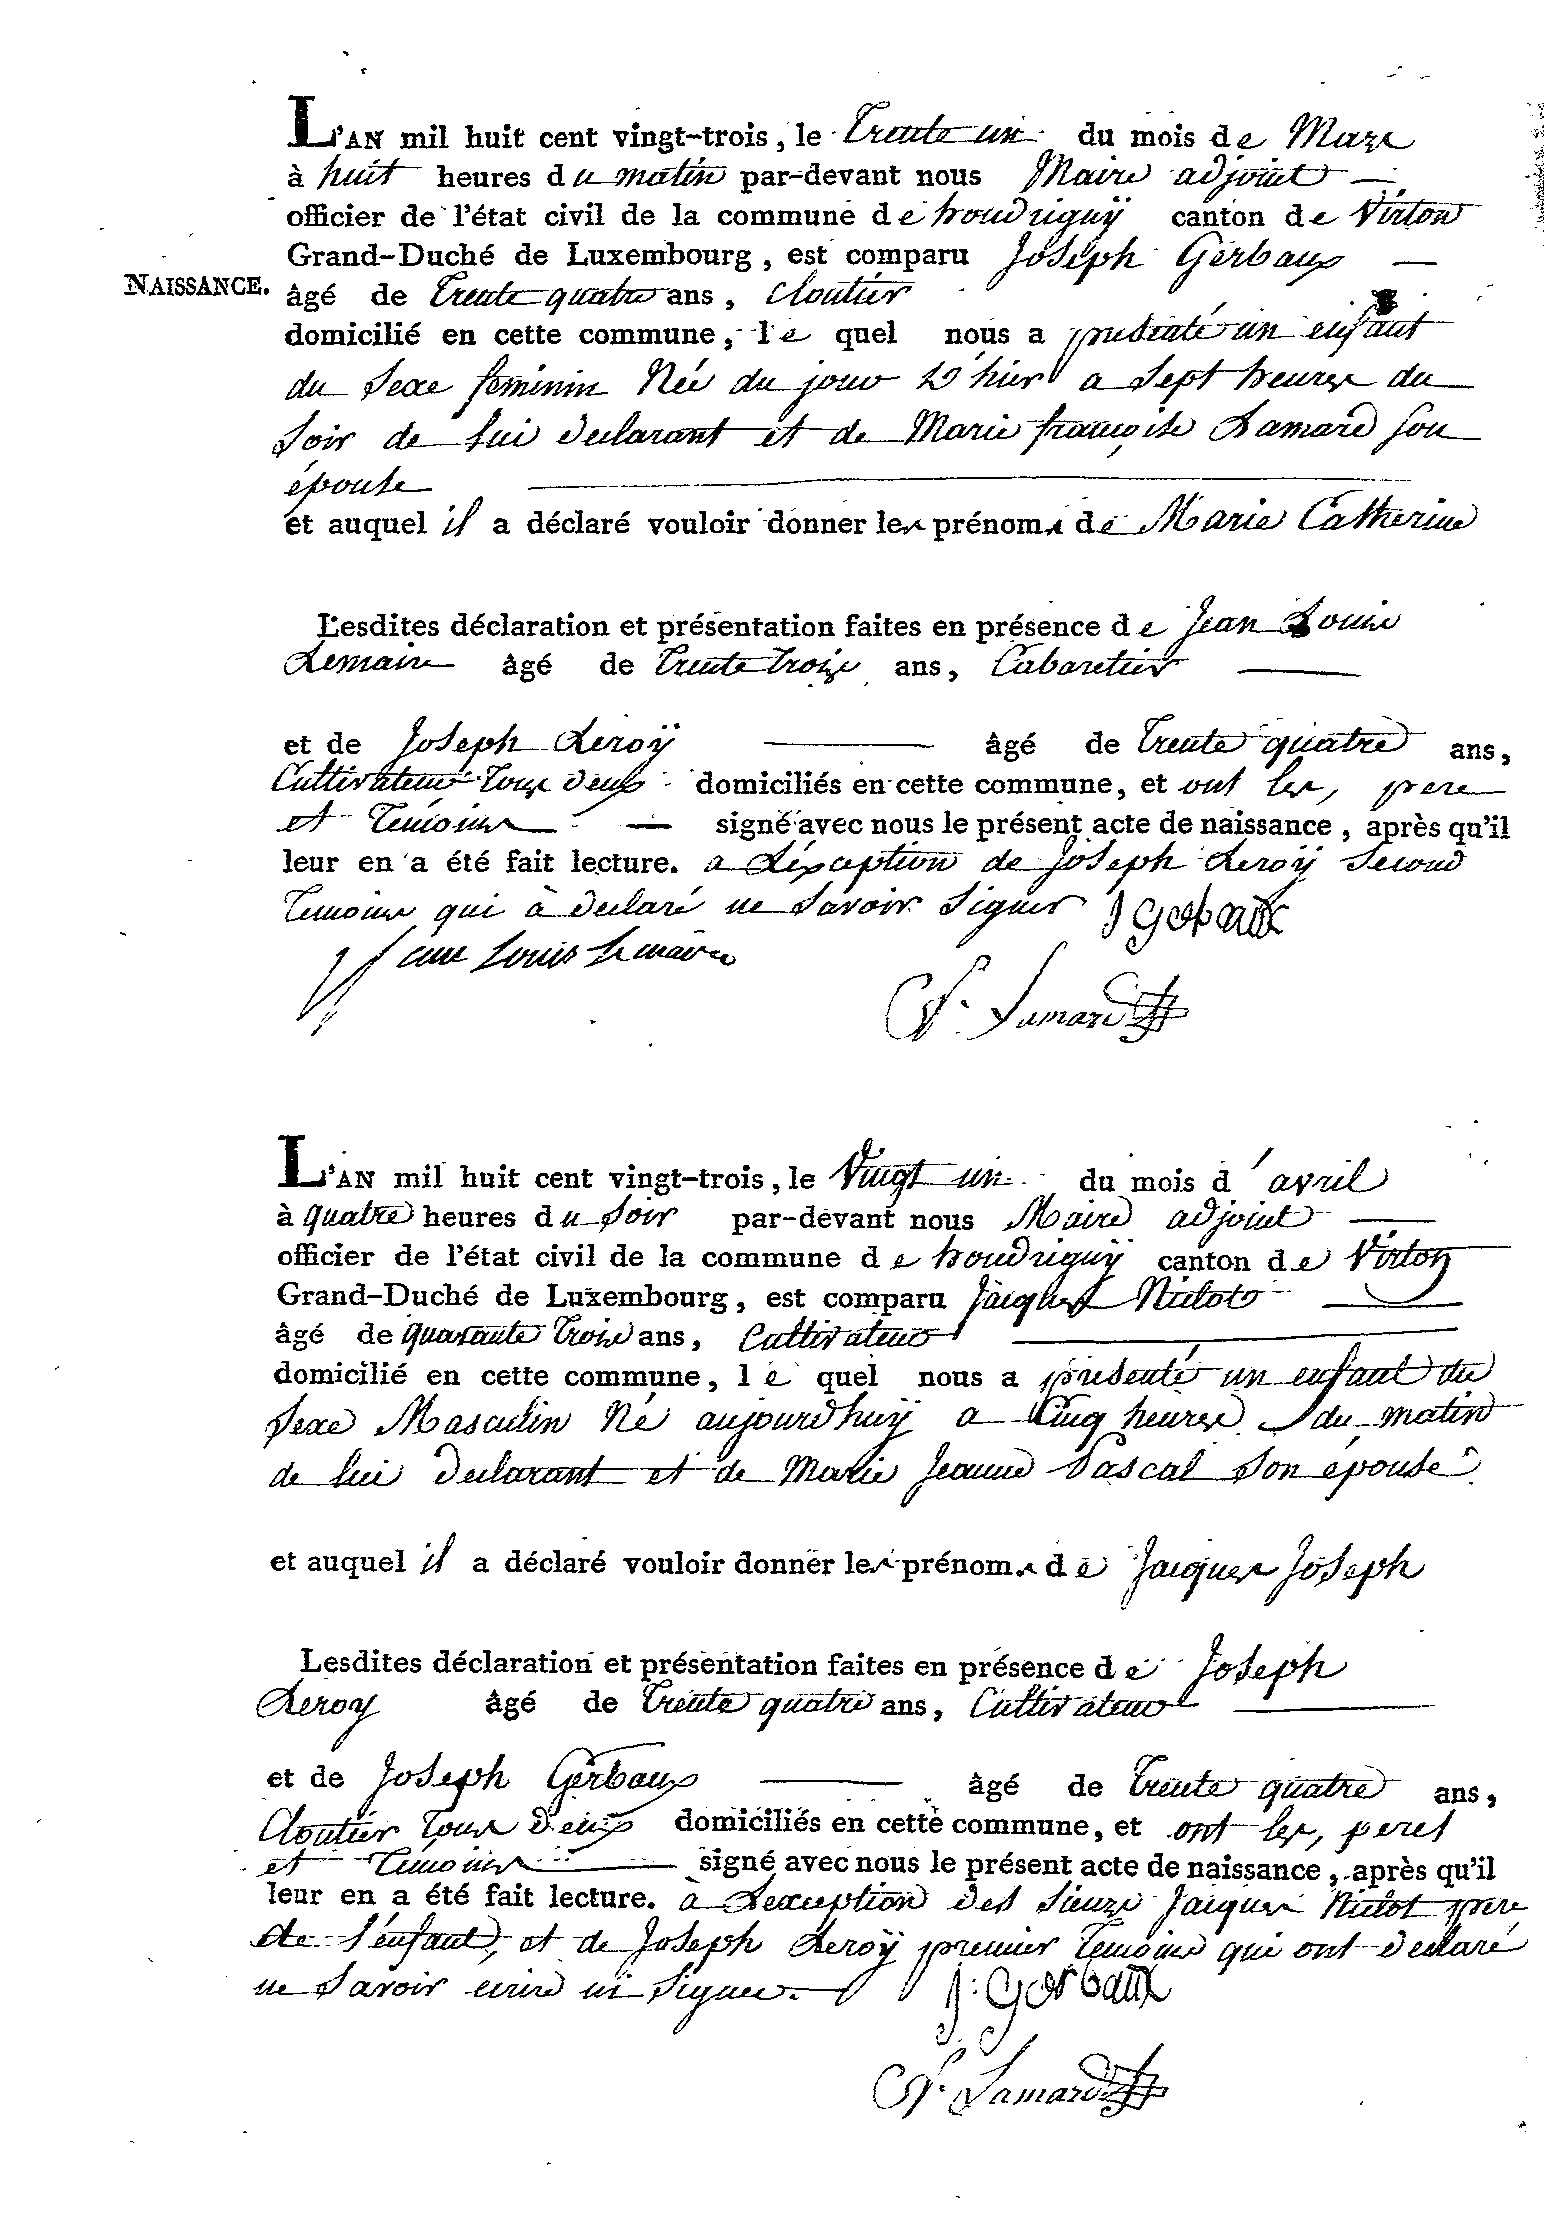 L'AN mil huit cent vingt-trois, le Trente un du mois de Mars
à huit heures du matin par-devant nous Maire adjoint —
officier de l'état civil de la commune de houdrignÿ canton de Virton
Grand-Duché de Luxembourg, est comparu Joseph Gerbaux —
NAISSANCE. âgé de Trente quatre ans, Cloutier
domicilié en cette commune, le quel nous a presenté un enfant
du Sexe feminin Née du jour D'hier a Sept heures du
Soir de lui declarant et de Marie françoise Lamard Son
épouse
et auquel il a déclaré vouloir donner les prénoms de Marie Catherine
Lesdites déclaration et présentation faites en présence de Jean Louis
Lemaire âgé de Trente Trois ans, Cabaretier —
et de Joseph Leroÿ — âgé de Trente quatre ans,
Cultivateur Tous deux domiciliés en cette commune, et ont les, pere
et Temoins — signé avec nous le présent acte de naissance, après qu'il
leur en a été fait lecture. a Léxception de Joseph Leroÿ Second
Temoins qui à declaré ne Savoir Signer J Gerbaux
Jean Louis Lemaire
F. Lamard
L'AN mil huit cent vingt-trois, le Vingt un du mois d'avril
à quatre heures du Soir par-devant nous Maire adjoint —
officier de l'état civil de la commune de houdrignÿ canton de Virton
Grand-Duché de Luxembourg, est comparu Jaiques Niclots —
âgé de quarante Trois ans, Cultivateur —
domicilié en cette commune, le quel nous a presenté un enfant du
Sexe Masculin Né aujourdhuÿ a Cinq heures du matin
de lui declarant et de Marie Jeanne Pascal Son épouse
et auquel il a déclaré vouloir donner les prénoms de Jaiques Joseph
Lesdites déclaration et présentation faites en présence de Joseph
Leroy âgé de Trente quatre ans, Cultivateur —
et de Joseph Gerbaux — âgé de Trente quatre ans,
Cloutier Tous deux domiciliés en cette commune, et ont les, peres
et Temoins — signé avec nous le présent acte de naissance, après qu'il
leur en a été fait lecture. à Lexception des Sieurs Jaiques Niclot pere
de l'énfant, et de Joseph Leroÿ premier Temoins qui ont declaré
ne Savoir ecrire ni Signer. J: Gerbaux
F. Lamard